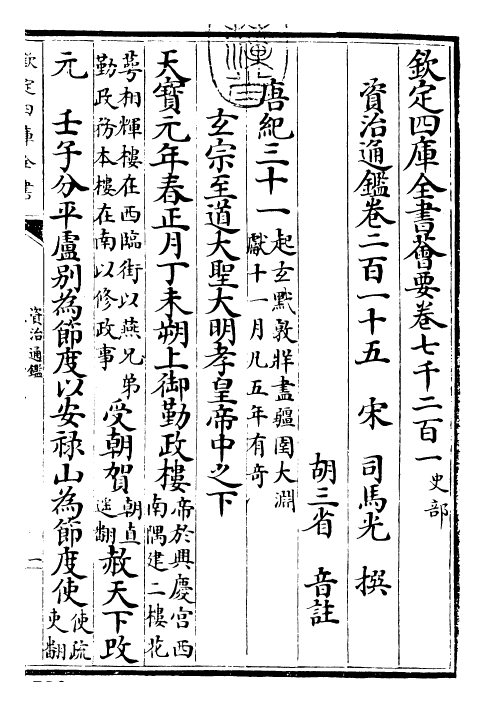 欽定四庫全書薈要卷七千二百一 史部
資治通鑑卷二百一十五 宋 司馬光 撰
胡三省 音註
唐紀三十一 起玄黓敦牂盡彊圉大淵獻十一月凡五年有奇
玄宗至道大聖大明孝皇帝中之下
天寶元年春正月丁未朔上御勤政樓 帝於興慶宫西南隅建二樓花
萼相輝樓在西臨街以燕兄弟勤政務本樓在南以修政事 受朝賀 朝直遥翻 赦天下改
元 壬子分平盧别為節度以安祿山為節度使 使疏吏翻
欽定四庫全書
資治通鑑
一